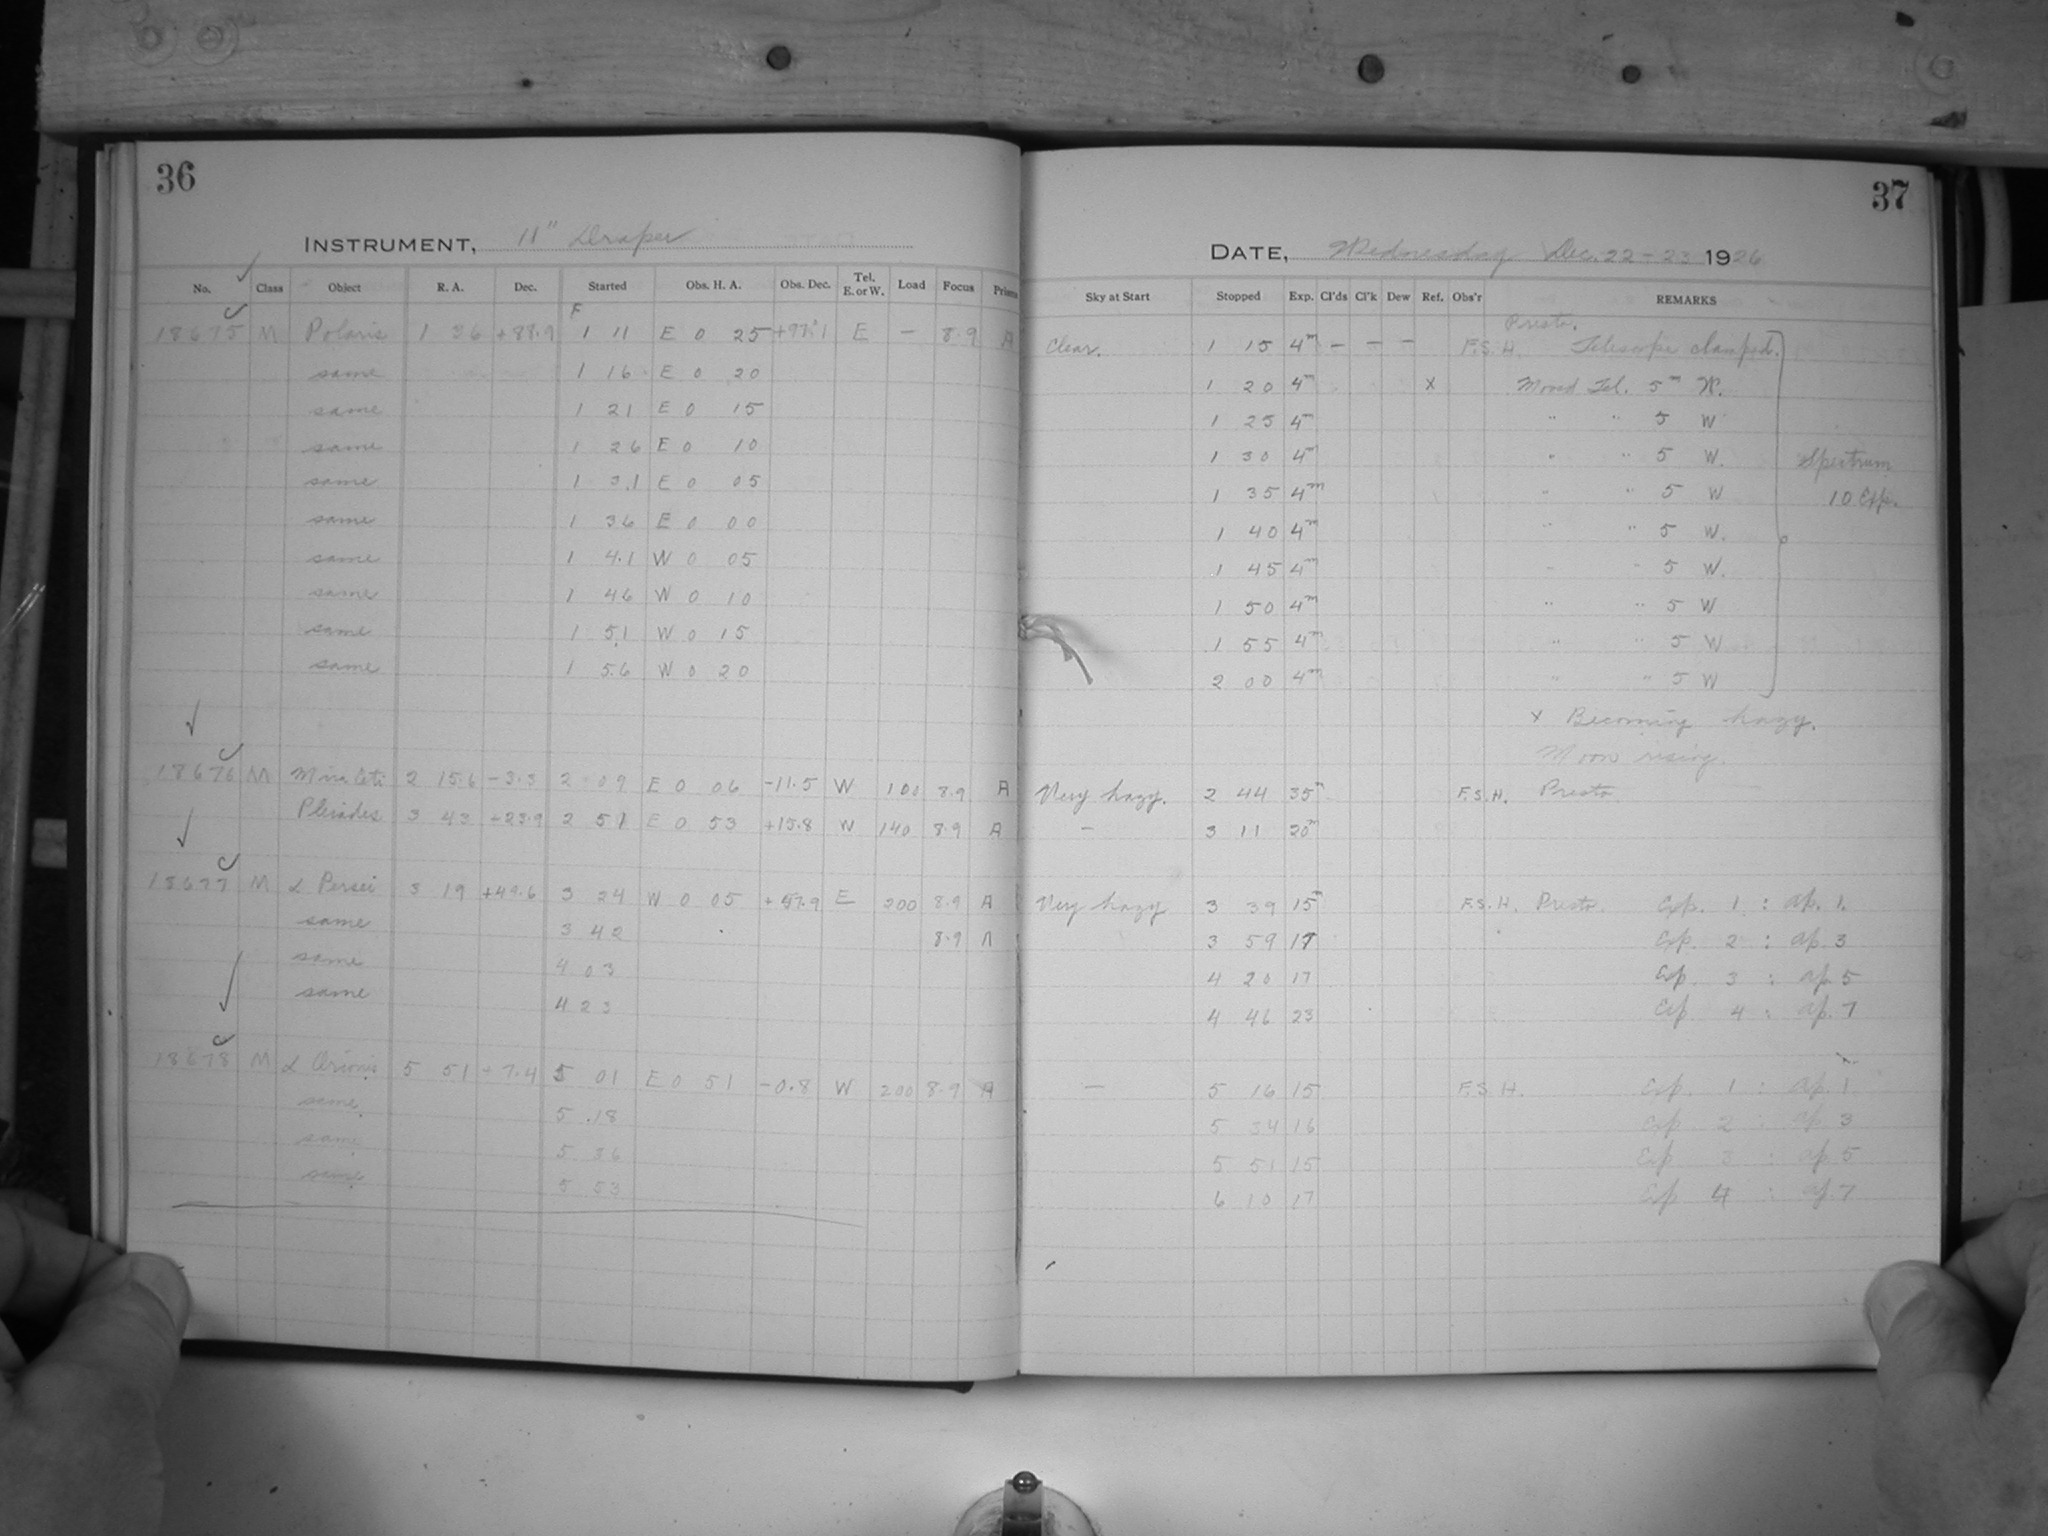 36
INSTRUMENT, 11" Draper
No. Class Object R. A. Dec. Started Obs. H. A. Obs. Dec. Tel. E. or W. Load Focus Prisms
F
18675 M Polaris 1 36 +88.9 1 11 E 0 25 E — 8.9 A
same 1 16 E 0 20
same 1 21 E 0 15
same 1 26 E 0 10
same 1 31 E 0 05
same 1 36 E 0 00
same 1 41 W 0 05
same 1 46 W 0 10
same 1 51 W 0 15
same 1 56 W 0 20
18676 M Mira Ceti 2 15.6 -3.3 2 09 E 0 06 -11.5 W 100 8.9 A
Pleiades 3 43 +23.9 2 51 E 0 53 +15.8 W 140 8.9 A
18677 M α Persei 3 19 +49.6 3 24 W 0 05 E 200 8.9 A
same 3 42 8.9 A
same 4 03
same 4 23
18678 M α Orionis 5 51 +7.4 5 01 E 0 51 -0.8 W 200 8.9 A
same 5 18
same 5 36
same 5 53
37
DATE, Wednesday Dec. 22-23 1926
Sky at Start Stopped Exp. Cl'ds Cl'k Dew Ref. Obs'r REMARKS
Presto.
Clear. 1 15 4m — — — F.S.H. Telescope clamped.
1 20 4m x Moved Tel. 5m W.
1 25 4m " " 5 W
1 30 4m " " 5 W. Spectrum
1 35 4m " " 5 W 10 Exp.
1 40 4m " " 5 W.
1 45 4m " " 5 W.
1 50 4m " " 5 W
1 55 4m " " 5 W
2 00 4m " " 5 W
x Becoming hazy.
Moon rising.
Very hazy. 2 44 35m F.S.H. Presto
— 3 11 20m
Very hazy 3 39 15m F.S.H. Presto. Exp. 1 : ap. 1.
3 59 17 Exp. 2 : ap. 3
4 20 17 Exp. 3 : ap. 5
4 46 23 Exp 4 : ap. 7
— 5 16 15 F.S.H. Exp. 1 : ap. 1
5 34 16 Exp 2 : ap 3
5 51 15 Exp 3 : ap. 5
6 10 17 Exp 4 : ap 7